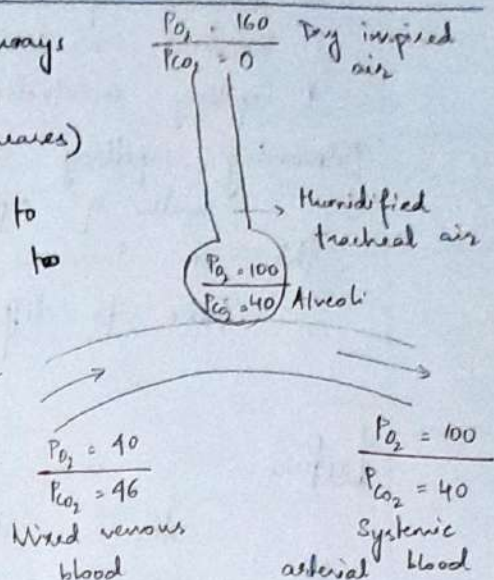 PO2 = 160 Dry inspired
PCO2 = 0 air
to
to
→ Humidified
tracheal air
PO2 = 100
PCO2 = 40 Alveoli
PO2 = 40
PCO2 = 46
Mixed venous
blood
PO2 = 100
PCO2 = 40
Systemic
arterial blood